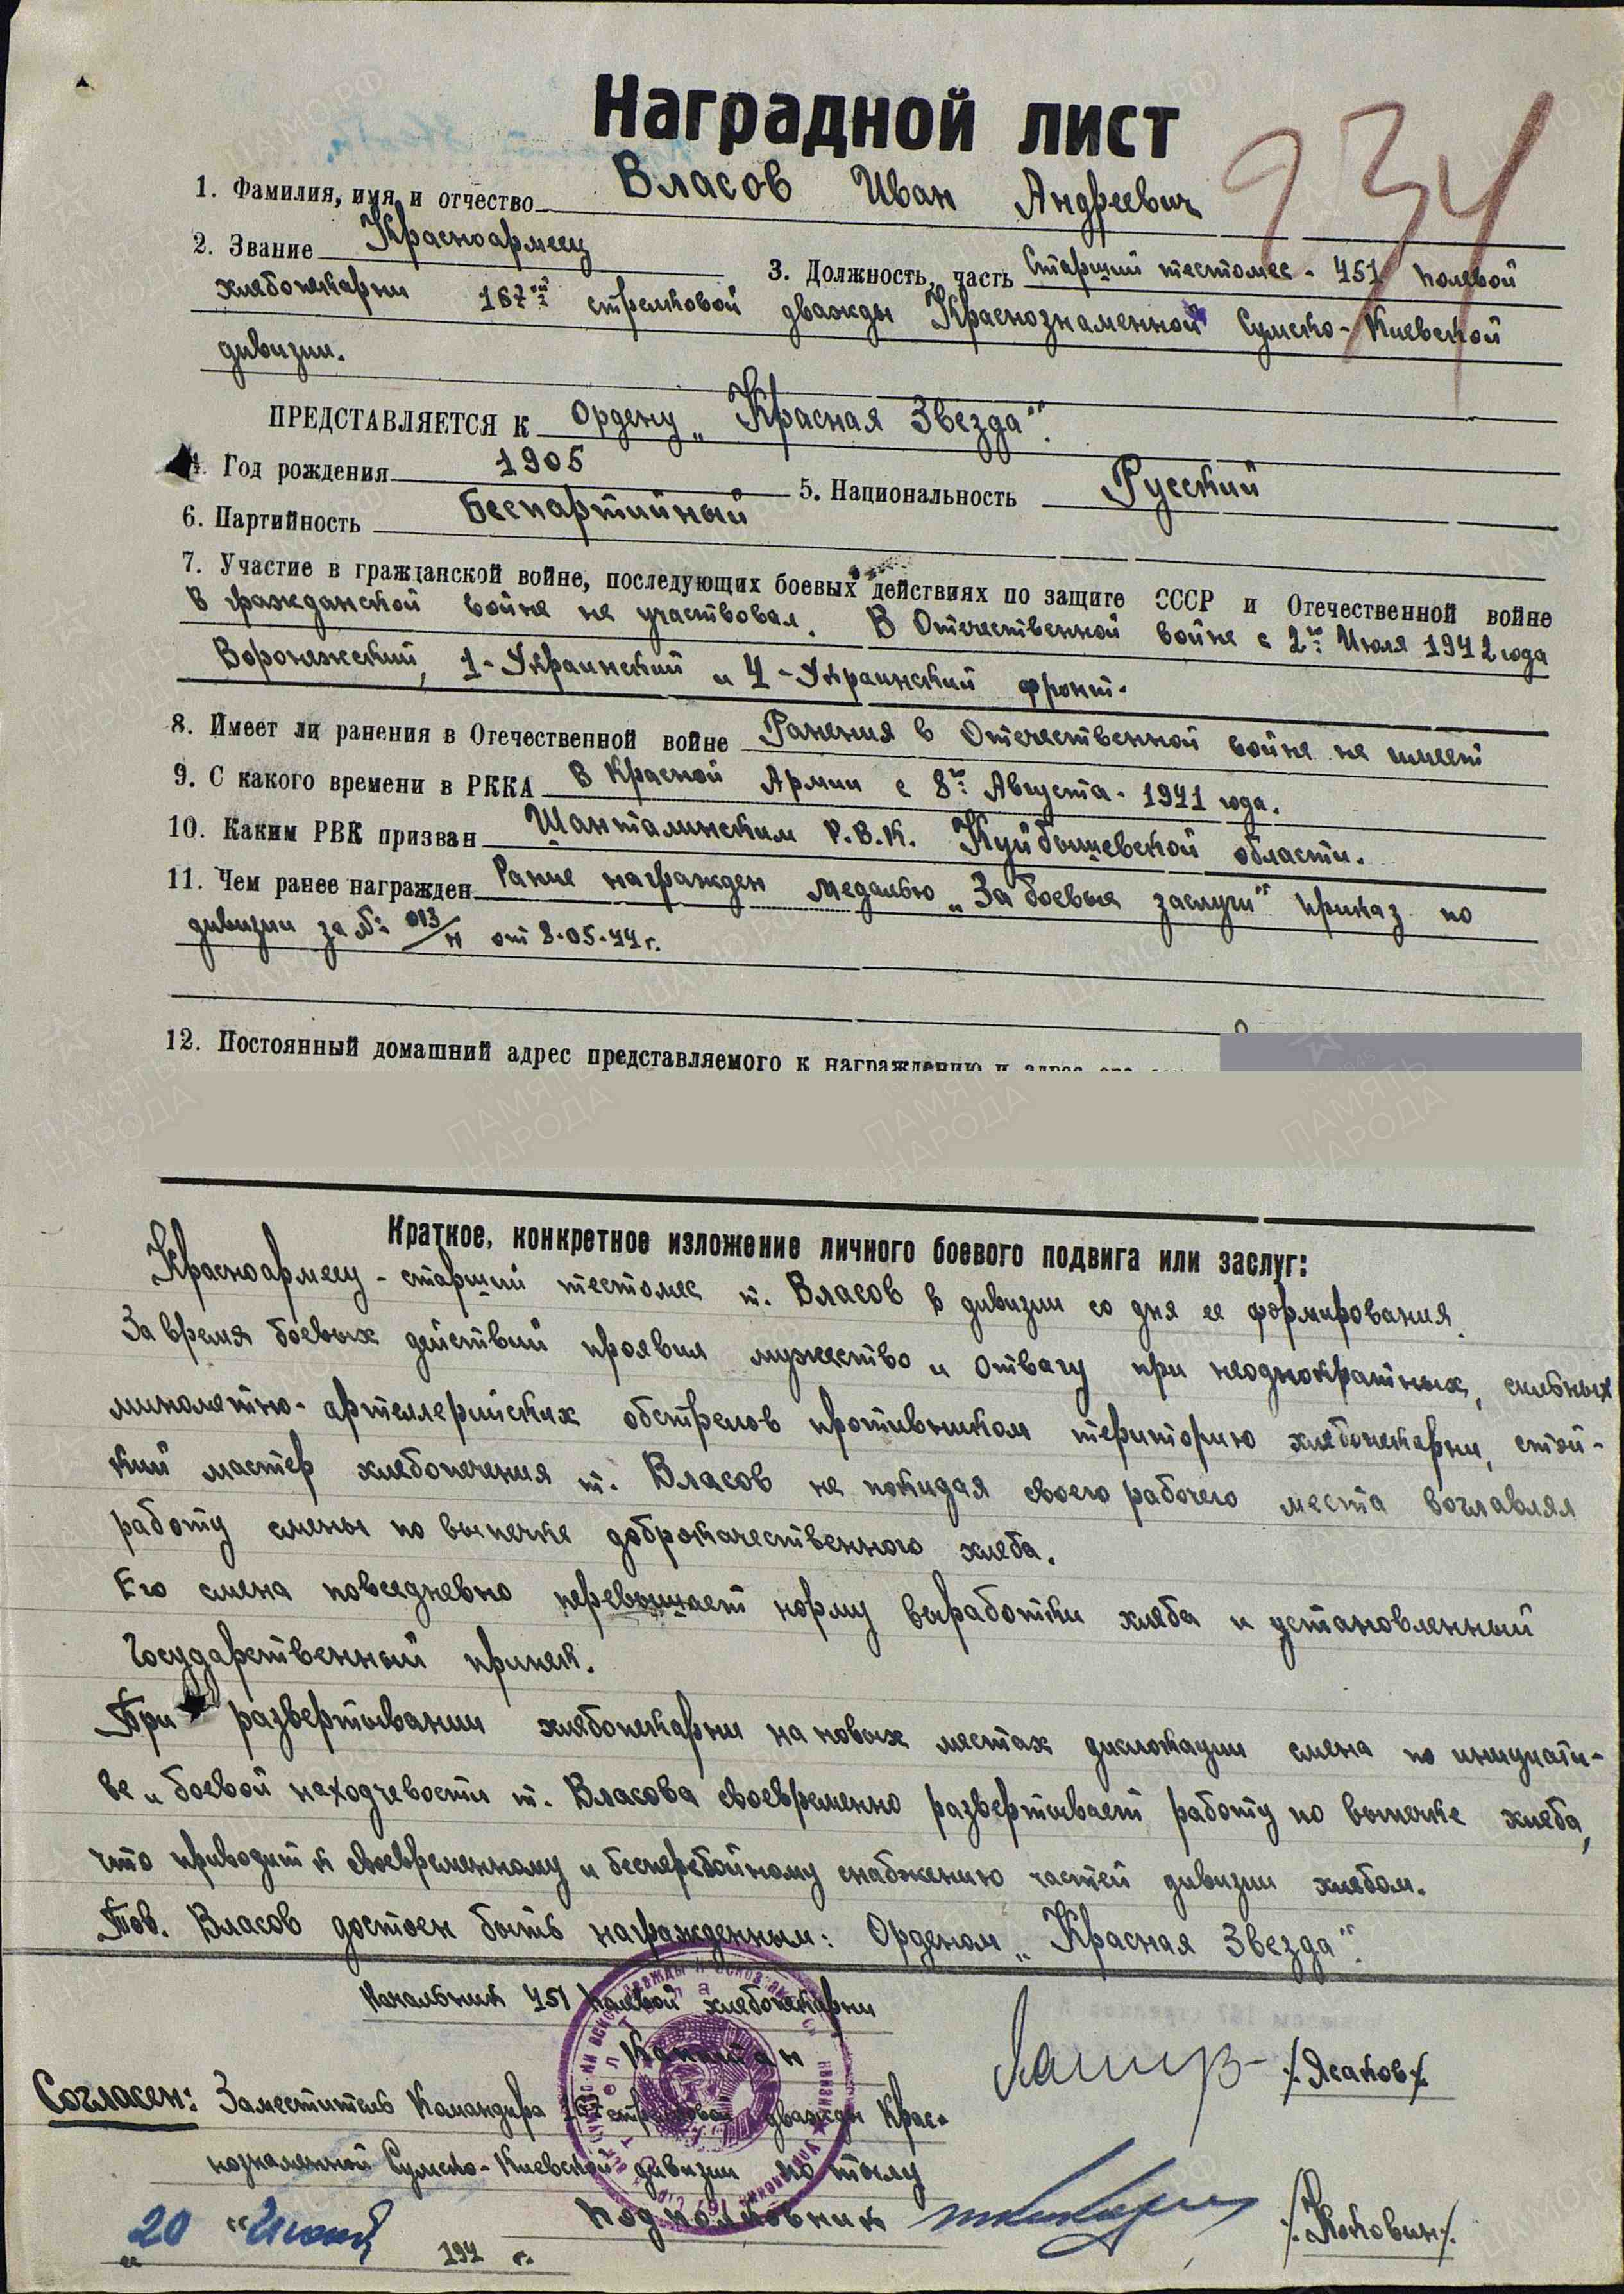 Наградной лист
934
1. Фамилия, имя и отчество Власов Иван Андреевич
2. Звание Красноармеец 3. Должность, часть Старший тестомес - 451 полевой
хлебопекарни 167ой стрелковой дважды Краснознаменной Сумско-Киевской
дивизии.
ПРЕДСТАВЛЯЕТСЯ К Ордену „Красная Звезда".
4. Год рождения 1905 5. Национальность Русский
6. Партийность Беспартийный
7. Участие в гражданской войне, последующих боевых действиях по защите СССР и Отечественной войне
В гражданской войне не участвовал. В Отечественной войне с 2го Июля 1942 года
Воронежский, 1-Украинский и 4-Украинский фронт.
8. Имеет ли ранения в Отечественной войне Ранения в Отечественной войне не имеет
9. С какого времени в РККА В Красной Армии с 8го Августа - 1941 года.
10. Каким РВК призван Шанталинским Р.В.К. Куйбышевской области.
11. Чем ранее награжден Ранее награжден медалью „За боевые заслуги" приказ по
дивизии за № 013/н от 8.05.44 г.
12. Постоянный домашний адрес представляемого к награждению и адрес его
Краткое, конкретное изложение личного боевого подвига или заслуг:
Красноармеец - старший тестомес т. Власов в дивизии со дня ее формирования.
За время боевых действий проявил мужество и отвагу при неоднократных, сильных
минометно-артеллерийских обстрелов противником територию хлебопекарни, стой-
кий мастер хлебопечения т. Власов не покидая своего рабочего места возглавлял
работу смены по выпечке доброкачественного хлеба.
Его смена повседневно перевышает норму выработки хлеба и установленный
Государственный припек.
При развертывании хлебопекарни на новых местах дислокации смена по инициати-
ве и боевой находчевости т. Власова своевременно развертывает работу по выпечке хлеба,
что приводит к своевременному и бесперебойному снабжению частей дивизии хлебом.
Тов. Власов достоен быть награжденным: Орденом „Красная Звезда".
Начальник 451 полевой хлебопекарни
Капитан /Ясаков/
Согласен: Заместитель Командира 167 стрелковой дважды Крас-
нознаменной Сумско-Киевской дивизии по тылу
Подполковник /Коковин/
„20" Июня 194 г.